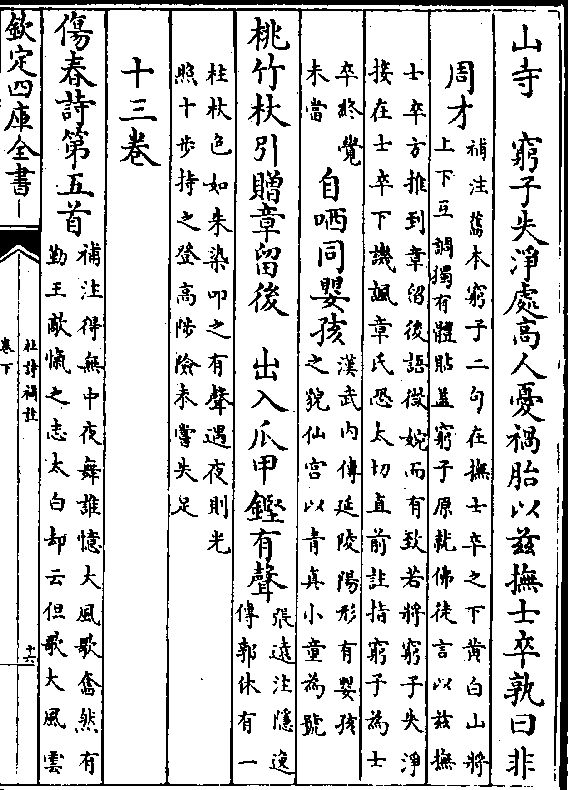 山寺　窮子失淨處高人憂禍胎以兹撫士卒孰曰非
周才
補注舊本窮子二句在撫士卒之下黄白山將
上下互調獨有體貼蓋窮子原就佛徒言以兹撫
士卒方推到章留後語微婉而有致若將窮子失淨
接在士卒下譏諷章氏恐太切直前註指窮子為士
卒終覺
未當
自哂同嬰孩
漢武内傳延陵陽形有嬰孩
之貌仙宫以青真小童為號
桃竹杖引贈章留後　出入爪甲鏗有聲
張遠注隱逸
傳郭休有一
柱杖色如朱染叩之有聲遇夜則光
照十步持之登高陟險未嘗失足
十三卷
傷春詩第五首
補注得無中夜舞誰憶大風歌奮然有
勤王敵愾之志太白却云但歌大風雲
欽定四庫全書
杜詩補註
卷下
十六